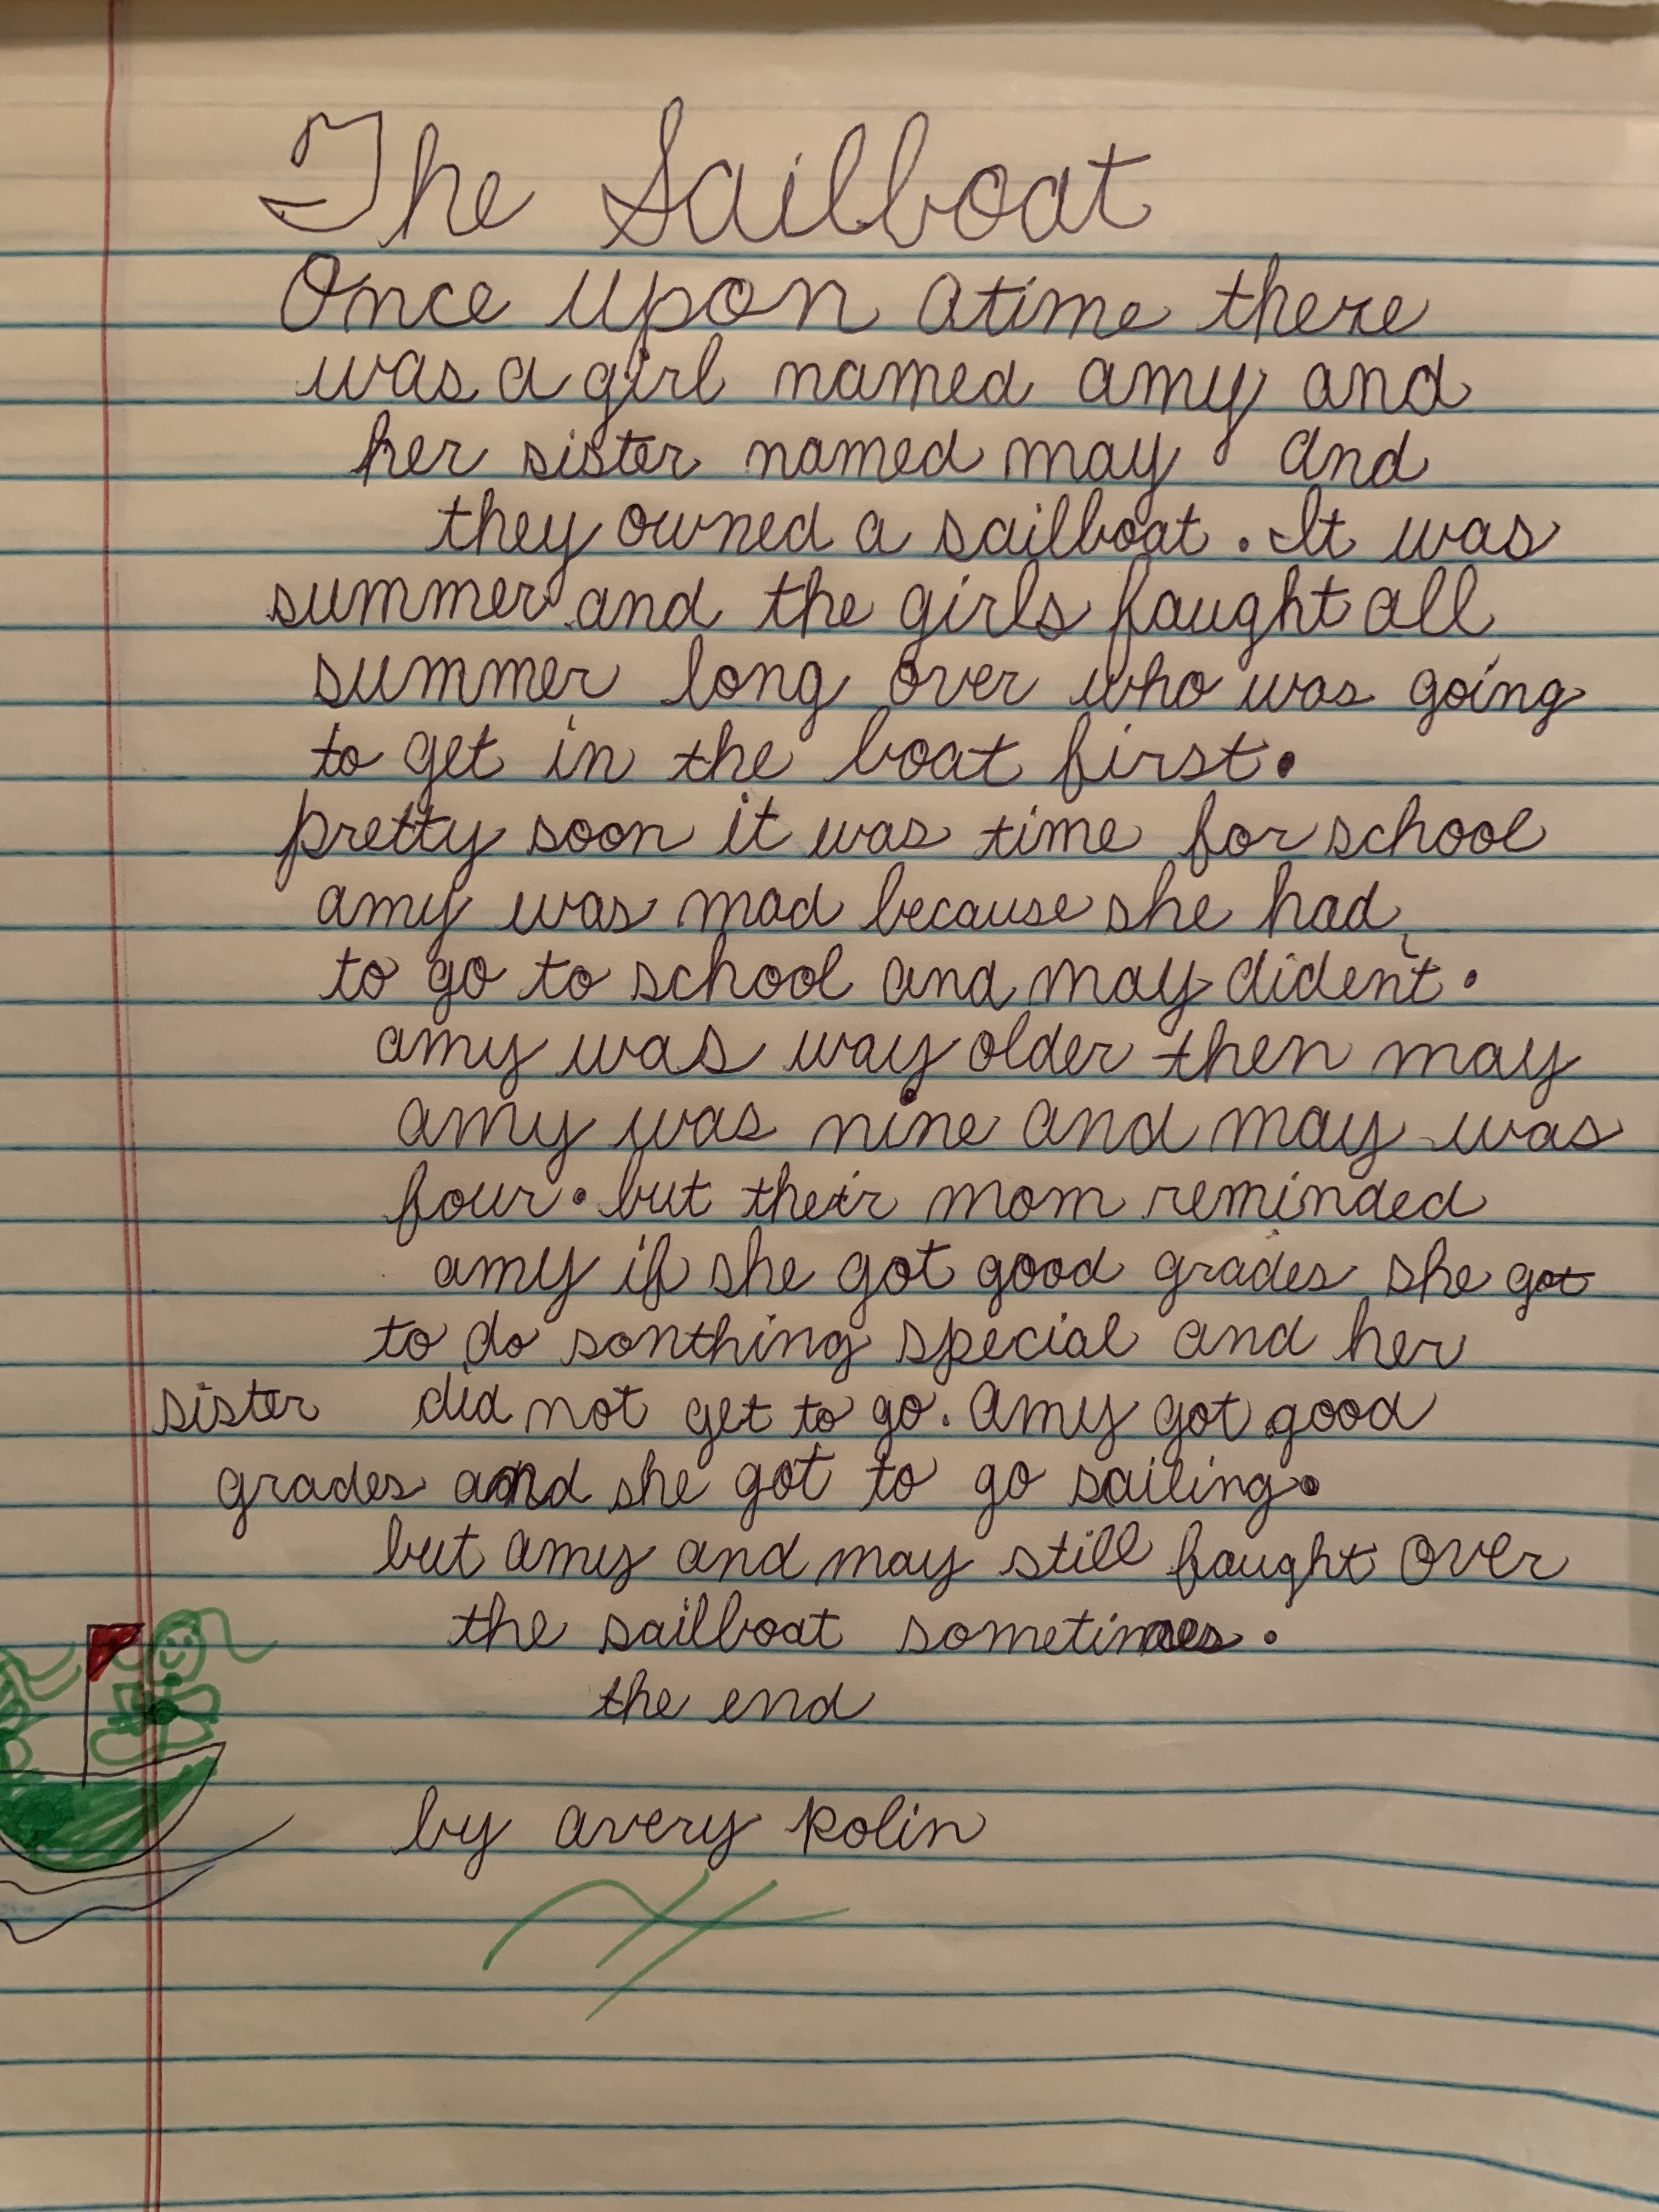 The Sailboat
Once upon atime there
was a girl named amy and
her sister named may. and
they owned a sailboat. It was
summer and the girls faught all
summer long over who was going
to get in the boat first.
pretty soon it was time for school
amy was mad because she had
to go to school and may dident.
amy was way older then may
amy was nine and may was
four. but their mom reminded
amy if she got good grades she got
to do sonthing special and her
sister did not get to go. amy got good
grades and she got to go sailing.
but amy and may still faught over
the sailboat sometimes.
the end
by avery Rolin